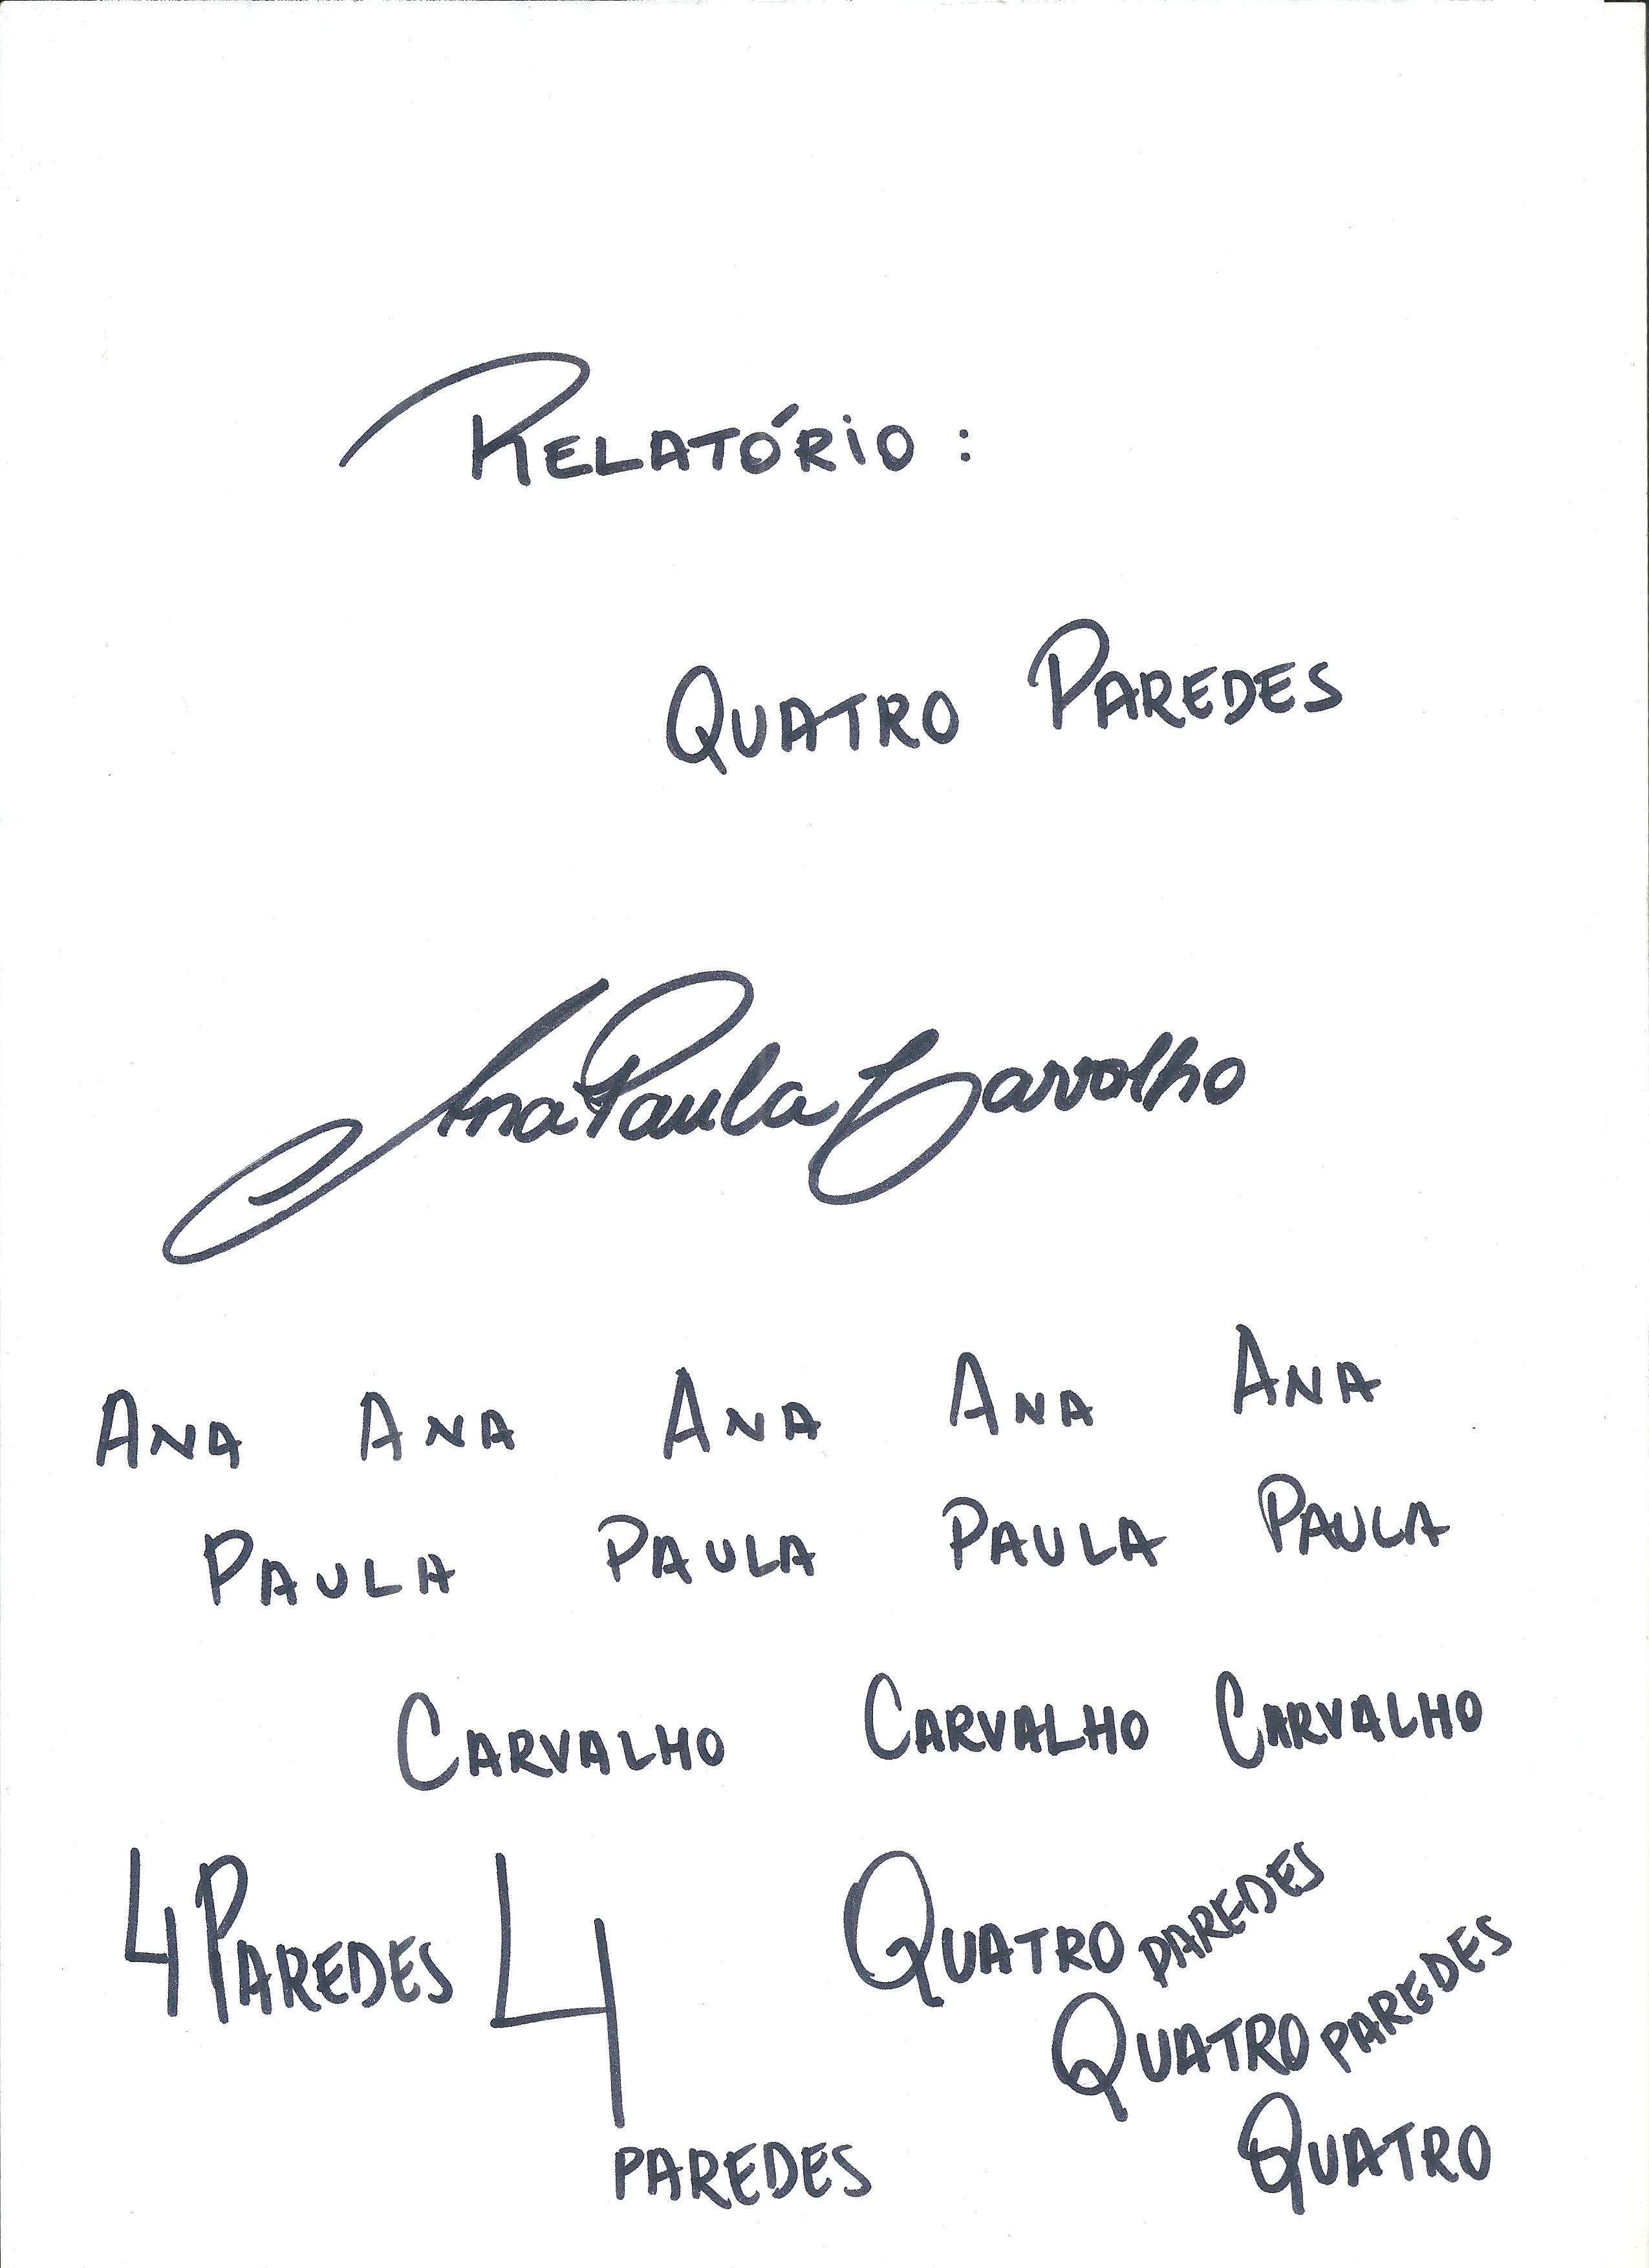 RELATÓRiO :
QUATRO PAREDES
Ana Paula Carvalho
ANA ANA ANA ANA ANA
PAULA PAULA PAULA PAULA
CARVALHO CARVALHO CARVALHO
4 PAREDES 4 PAREDES
QUATRO PAREDES
QUATRO PAREDES
QUATRO